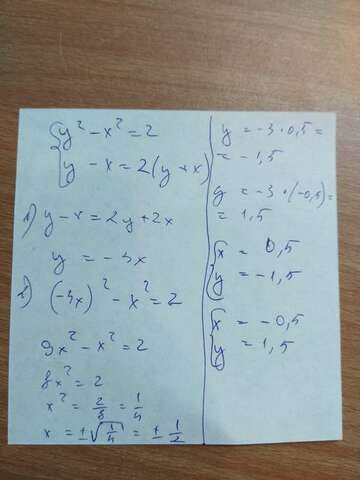 y² - x² = 2
y - x = 2(y + x)
1) y - x = 2y + 2x
y = -3x
2) (-3x)² - x² = 2
9x² - x² = 2
8x² = 2
x² = 2/8 = 1/4
x = ±√(1/4) = ± 1/2
y = -3 · 0,5 =
= -1,5
y = -3 · (-0,5) =
= 1,5
x = 0,5
y = -1,5
x = -0,5
y = 1,5